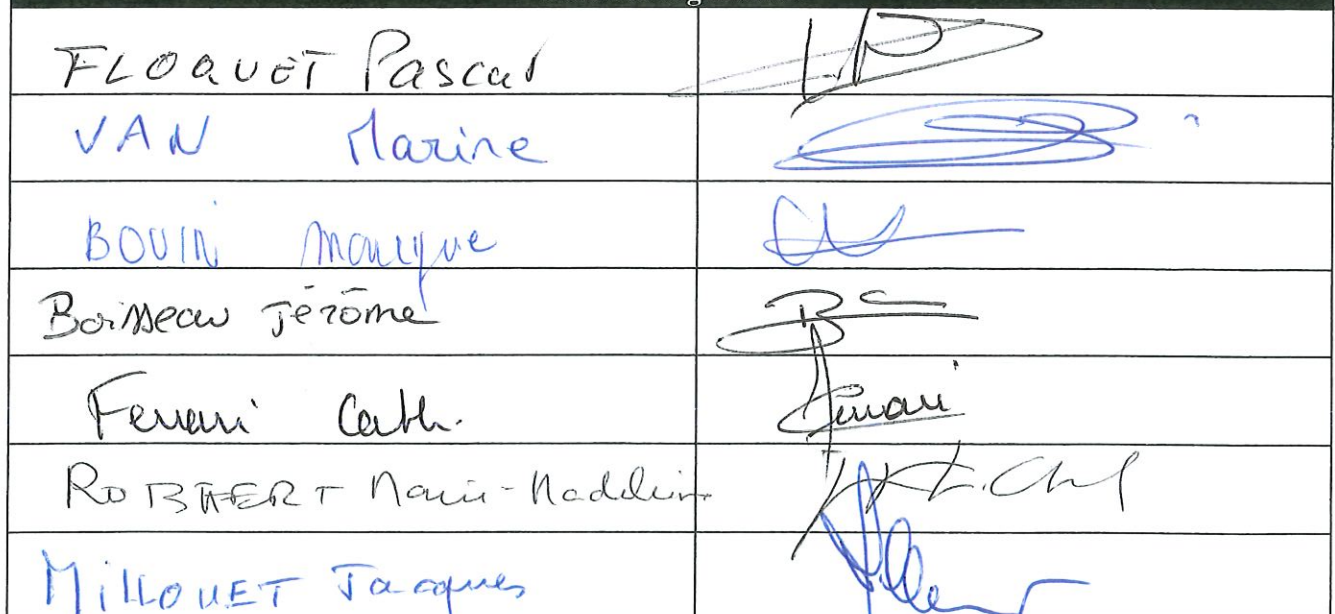 FLOQUET Pascal
VAN Marine
BOUIN Monique
Boisseau Jérôme
Ferrari Cath. Ferrari
Marie-Madeleine
MILLOUET Jacques